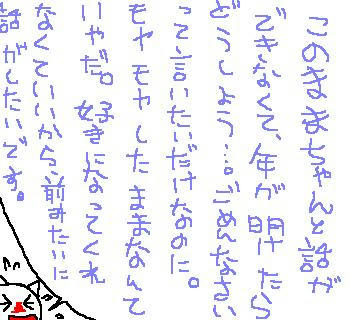 このままちゃんと話が
できなくて、年が明けたら
どうしよう…。ごめんなさい
って言いたいだけなのに。
モヤモヤしたままなんて
いやだ。好きになってくれ
なくていいから、前みたいに
話がしたいです。